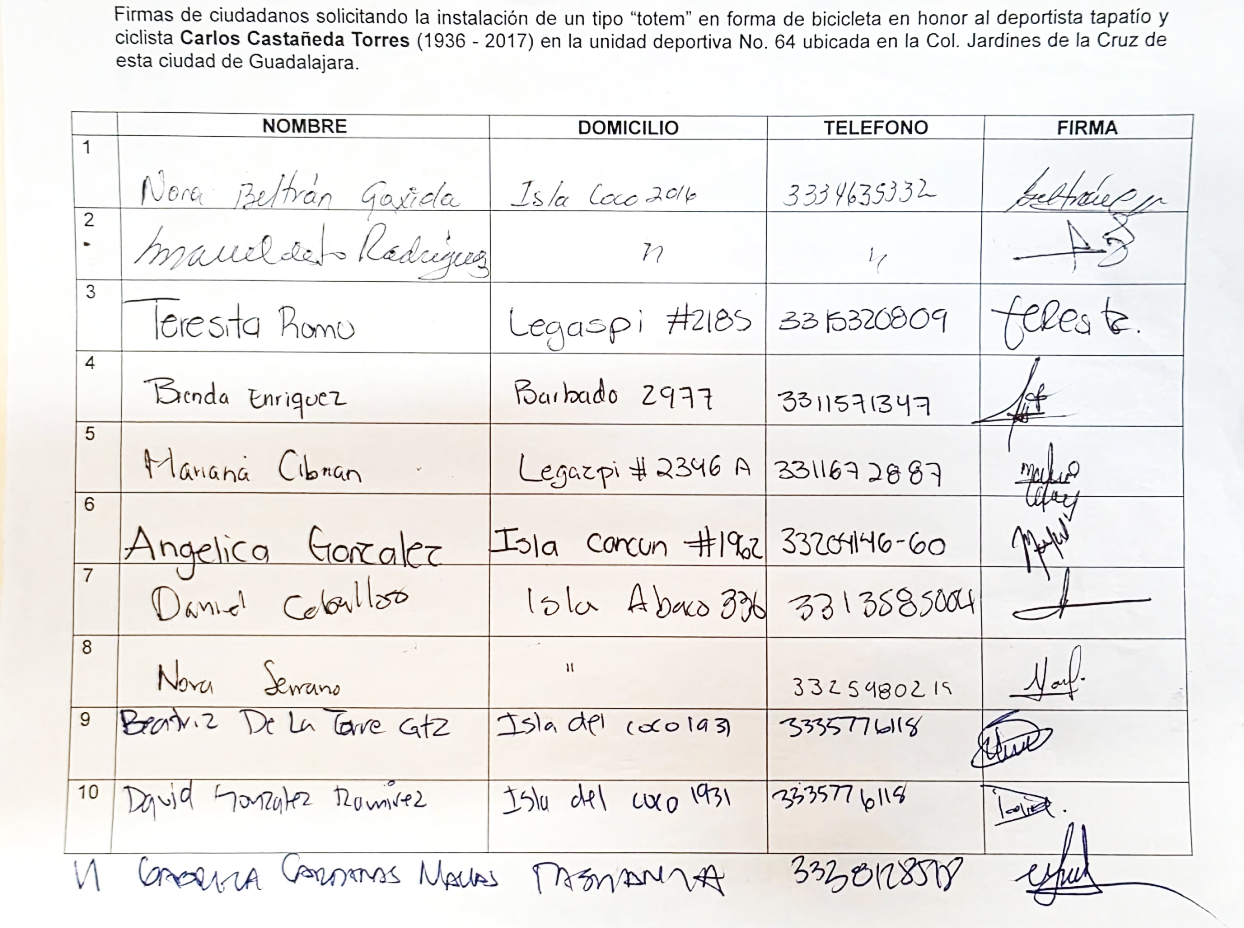 Firmas de ciudadanos solicitando la instalación de un tipo “totem” en forma de bicicleta en honor al deportista tapatío y
ciclista Carlos Castañeda Torres (1936 - 2017) en la unidad deportiva No. 64 ubicada en la Col. Jardines de la Cruz de
esta ciudad de Guadalajara.
NOMBRE DOMICILIO TELEFONO FIRMA
1 Nora Beltrán Gaxiola Isla Coco 2016 3334635332
2 Rodríguez " "
3 Teresita Romo Legaspi #2185 3315320809 Teresita.
4 Brenda Enriquez Barbado 2977 3311571347
5 Mariana Legazpi # 2346 A 3311672887
6 Angelica Gonzalez Isla Cancun #1962 33204146-60
7 Daniel Ceballos Isla Abaco 336 3313585004
8 Nora Serrano " 3325980219
9 Beatriz De La Torre Gtz Isla del coco 1931 3335776118
10 David Gonzalez Ramirez Isla del coco 1931 3335776118
11 Cardenas